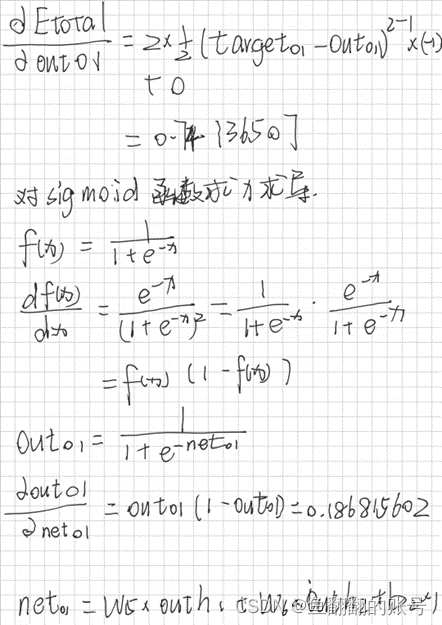 ∂Etotal/∂out01 = 2×1/2(target01-out01)^(2-1)×(-1)
+0
= 0.74136507
对sigmoid函数求导.
f(x) = 1/(1+e^-x)
df(x)/dx = e^-x/(1+e^-x)^2 = 1/(1+e^-x) · e^-x/(1+e^-x)
= f(x) (1-f(x))
out01 = 1/(1+e^-net01)
∂out01/∂net01 = out01(1-out01)=0.186815602
net01 = w5×outh1+w6×outh2+b2×1
CSDN @鱼翻翻的账号